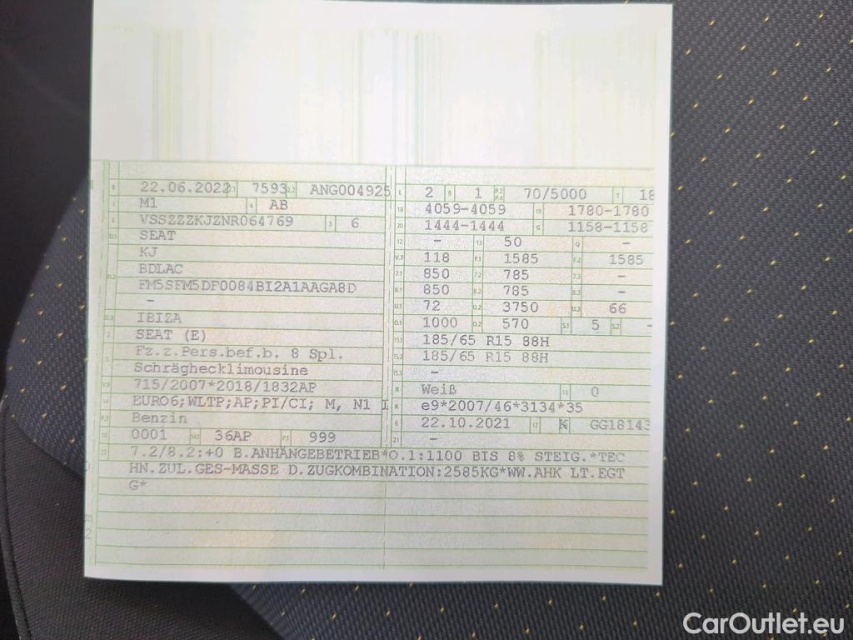 22.06.2022 7593 ANG004925 2 1 70/5000 18
M1 AB 4059-4059 1780-1780
VSSZZZKJZNR064769 6 1444-1444 1158-1158
SEAT - 50 -
KJ 118 1585 1585
BDLAC 850 785 -
FM5SFM5DF0084BI2A1AAGA8D 850 785 -
- 72 3750 66
IBIZA 1000 570 5 -
SEAT (E) 185/65 R15 88H
Fz.z.Pers.bef.b. 8 Spl. 185/65 R15 88H
Schräghecklimousine -
715/2007*2018/1832AP Weiß 0
EURO6;WLTP;AP;PI/CI; M, N1 I e9*2007/46*3134*35
Benzin 22.10.2021 K GG18143
0001 36AP 999 -
7.2/8.2:+0 B.ANHÄNGEBETRIEB*O.1:1100 BIS 8% STEIG.*TEC
HN.ZUL.GES-MASSE D.ZUGKOMBINATION:2585KG*WW.AHK LT.EGT
G*
CarOutlet.eu